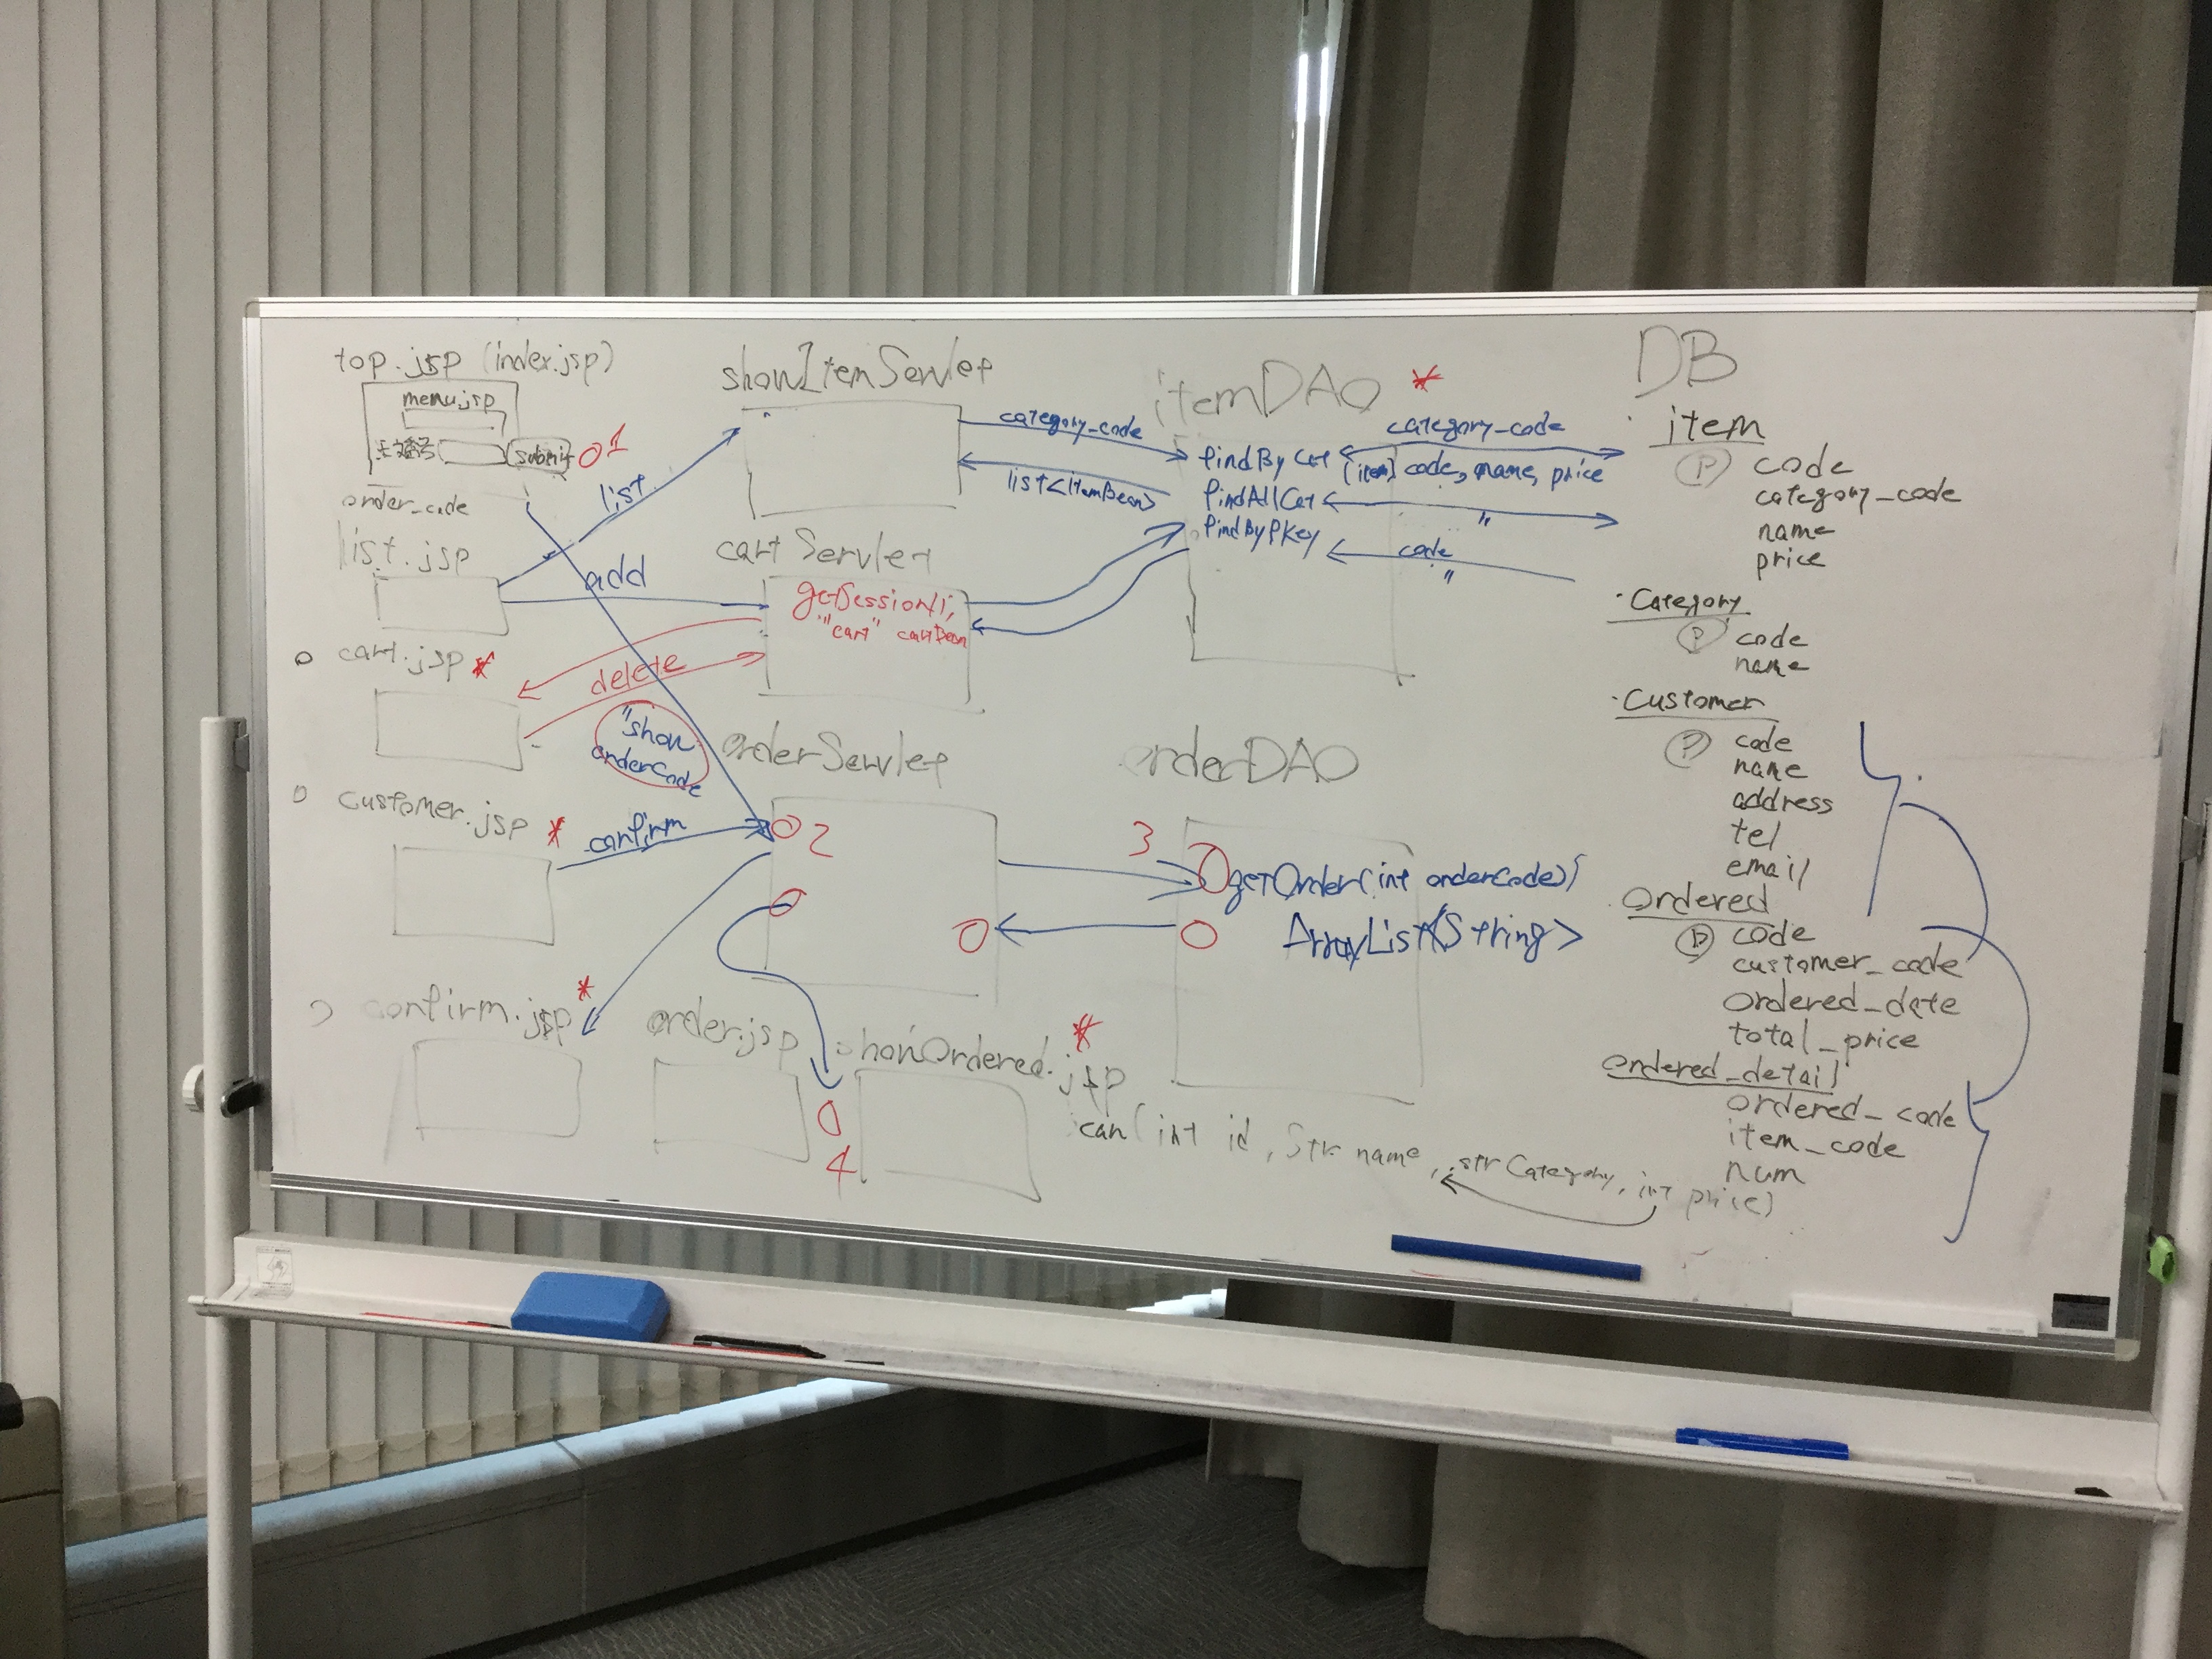 top.jsp (index.jsp)
menu.jsp
submit
1
order_code
list.jsp
cart.jsp *
customer.jsp *
confirm.jsp *
order.jsp
showOrdered.jsp *
4
list
add
delete
"show
orderCode
confirm
showItemServlet
cartServlet
getSession();
"cart" cartBean
orderServlet
2
category_code
list<itemBean>
itemDAO *
findByCat
findAllCat
findByPKey
category_code
[item] code, name, price
"
code
"
orderDAO
3
getOrder(int orderCode){
ArrayList<String>
can( int id, Str name, str Category, int price)
DB
・item
Ⓟ code
category_code
name
price
・Category
Ⓟ code
name
・Customer
Ⓟ code
name
address
tel
email
Ordered
Ⓟ code
customer_code
ordered_date
total_price
ordered_detail
ordered_code
item_code
num